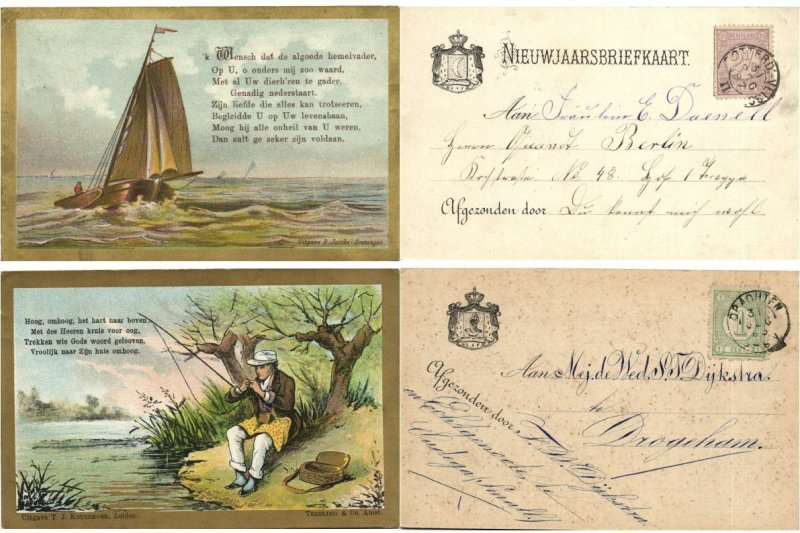 'k Wensch dat de algoede hemelvader,
Op U, o onders mij zoo waard,
Met al Uw dierb'ren te gader,
Genadig nederstaart.
Zijn liefde die alles kan trotseeren,
Begleidde U op Uw levensbaan,
Moog hij alle onheil van U weren,
Dan zult ge zeker zijn voldaan.
Uitgave B. Jacobs-Groningen
NIEUWJAARSBRIEFKAART.
NEDERLAND
Aan Fräulein E. Daenell
Herrn Quandt Berlin
No 48. Hof 1 Treppe
Afgezonden door Du kennst mich wohl
Hoog, omhoog, het hart naar boven
Met des Heeren kruis voor oog,
Trekken wie Gods woord gelooven,
Vroolijk naar Zijn huis omhoog.
Uitgave T. J. Leiden.
& Co. Amst.
DRACHTEN
Aan Mej. de Wed. S. T. Dijkstra.
te
Drogeham.
Afgezonden door
en
Dijkstra